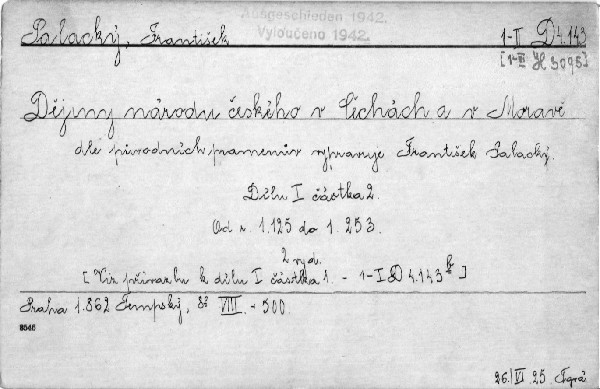 Ausgeschieden 1942.
Vyloučeno 1942.
Palacký, František
1-II D 4.143
[1-III H 3095]
Dějiny národu českého v Čechách a v Moravě
dle původních pramenův vypravuje František Palacký.
Dílu I částka 2.
Od r. 1.125 do 1.253.
2 vyd.
[Viz přívazku k dílu I částka 1. - 1-I D 4.143 ]
Praha 1.862 Tempský, 8° VIII. - 500.
8546
26./VI 25.